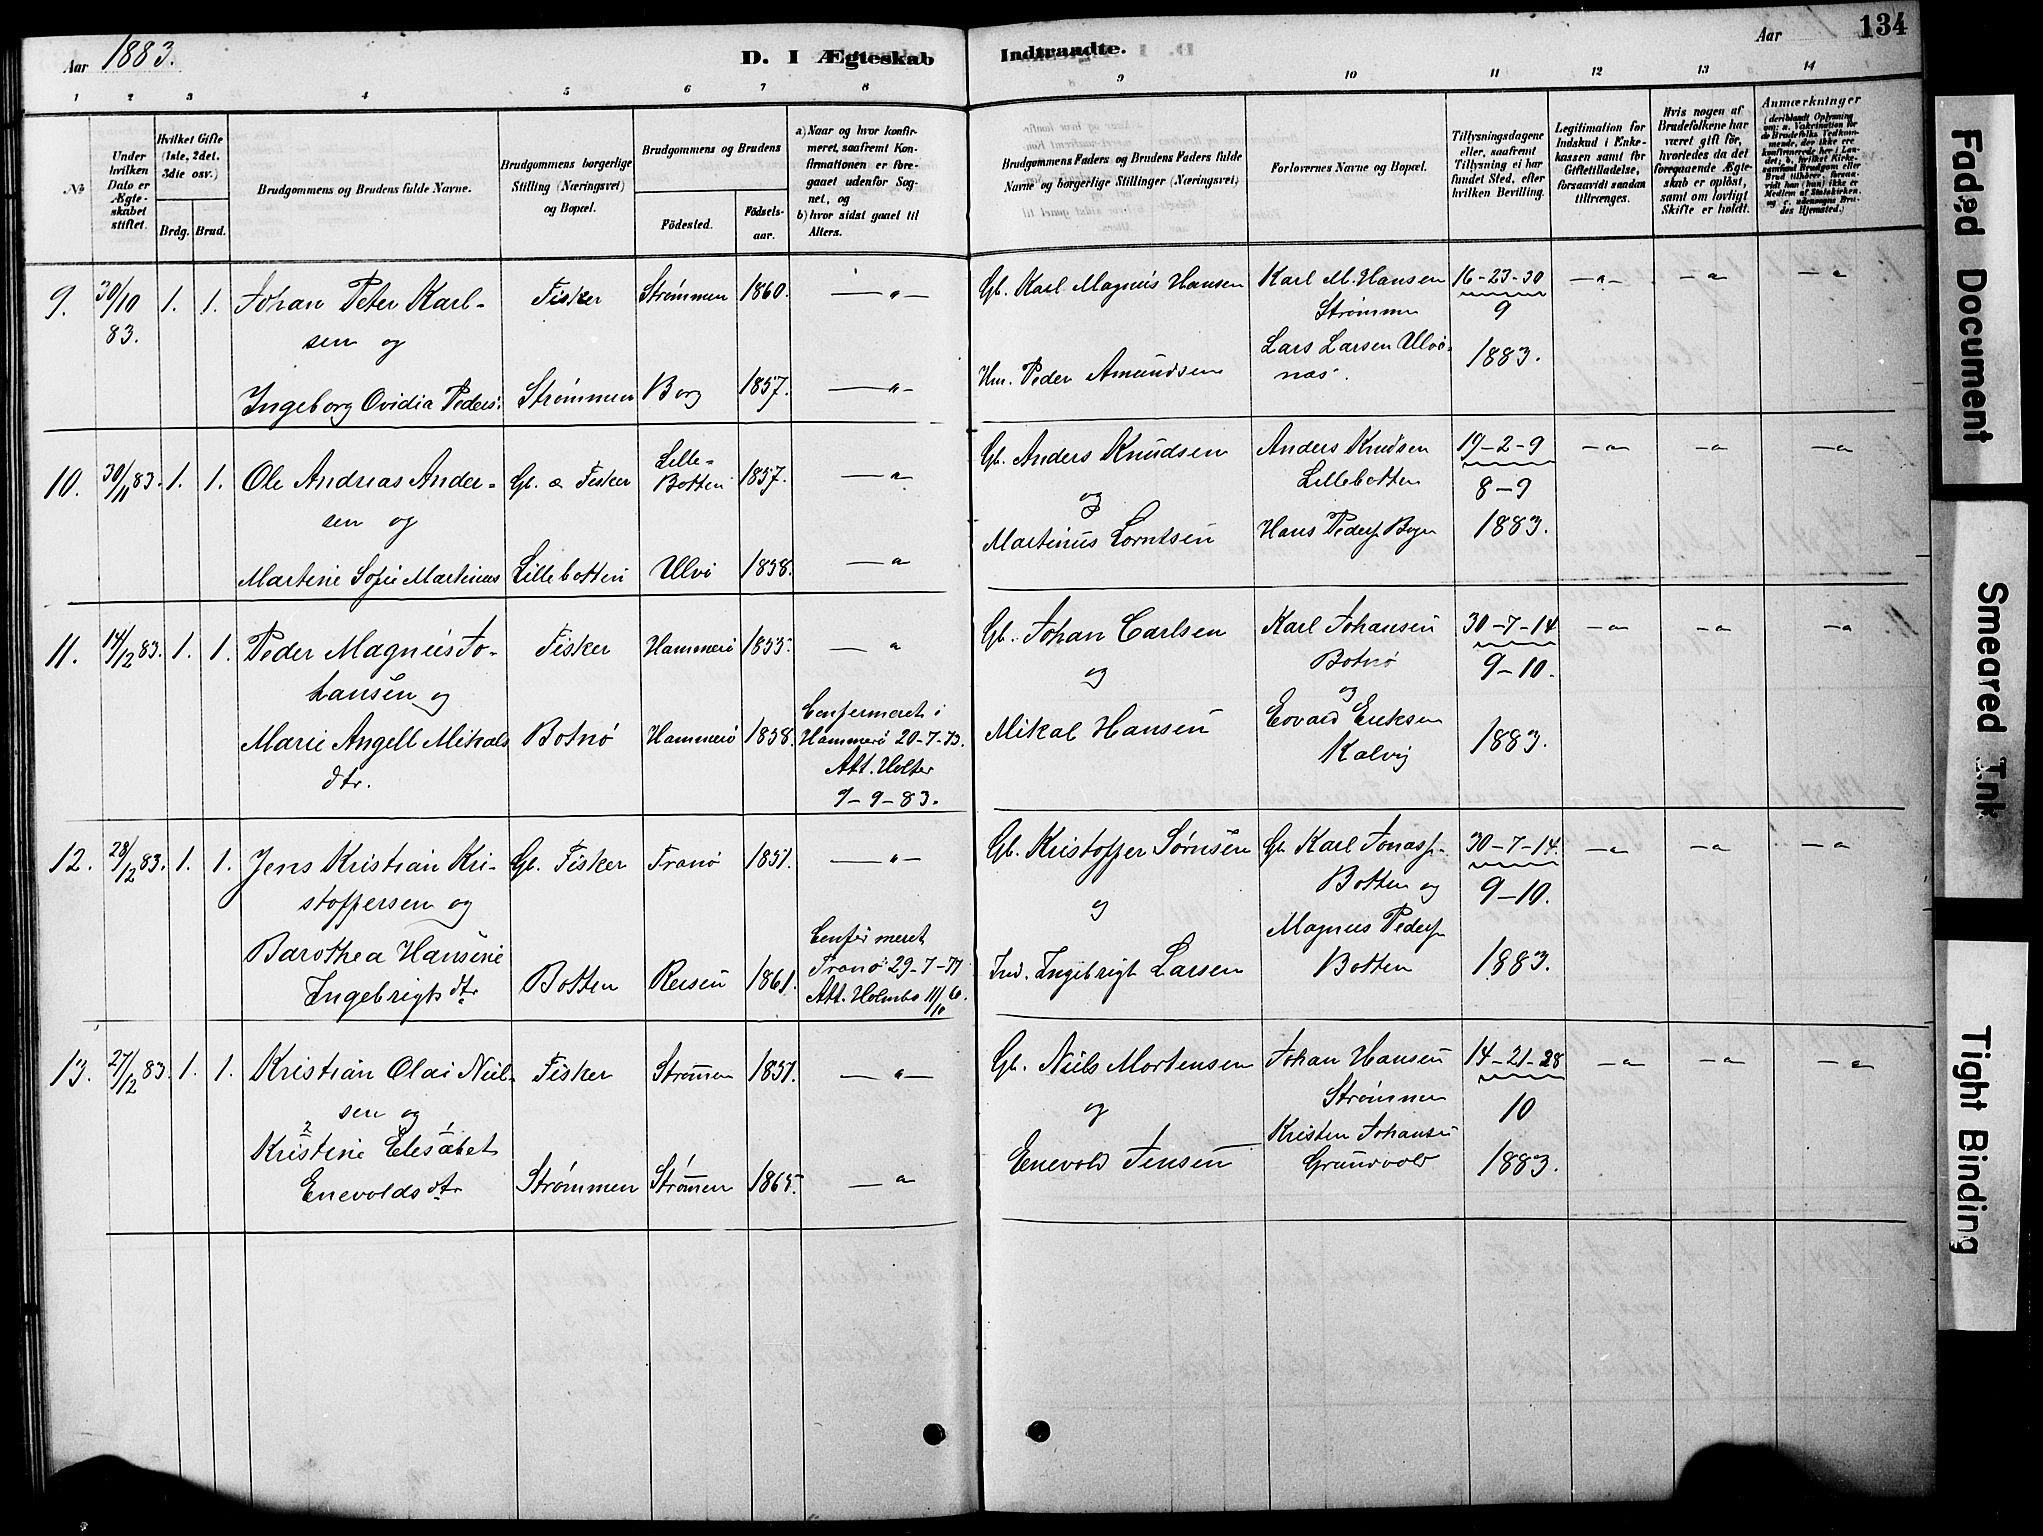 Aar 1883.
D. I Ægteskab
Indtraadte.
Aar
134
1 2 3 4 5 6 7 8
9 10 11 12 13 14
No
Under hvilken Dato er Ægteskabet stiftet.
Hvilket Gifte (1ste, 2det, 3die osv.)
Brdg. Brud.
Brudgommens og Brudens fulde Navne.
Brudgommens borgerlige Stilling (Næringsvei) og Bopæl.
Brudgommens og Brudens
Födested.
Födselsaar.
a) Naar og hvor konfirmeret, saafremt Konfirmationen er foregaaet udenfor Sognet, og
b) hvor sidst gaaet til Alters.
Brudgommens Faders og Brudens Faders fulde Navne og borgerlige Stillinger (Næringsvei)
Forlovernes Navne og Bopæl.
Tillysningsdagene eller, saafremt Tillysning ei har fundet Sted, efter hvilken Bevilling.
Legitimation for Indskud i Enkekassen samt for Giftetilladelse, forsaavidt saadan tiltrænges.
Hvis nogen af Brudefolkene har været gift för, hvorledes da det foregaaende Ægteskab er oplöst, samt om lovligt Skifte er holdt.
Anmærkninger
9. 30/10 83. 1. 1. Johan Peter Karl- Fisker Strømmen 1860. — " — Gb. Karl Magnus Hansen Karl M. Hansen 16-23-30 — " — — " — "
sen og Strømmen 9
Ingeborg Ovidia Peders: Strømmen Borg 1857. — " — Hm. Peder Amundsen Lars Larsen Ulvö- 1883.
næs.
10. 30/11 83. 1. 1. Ole Andreas Ander- Gb. & Fisker Lille- 1857. — " Gb. Anders Knudsen Anders Knudsen 19-2-9 — " — " — "
Botten
sen og og Lillebotten 8-9
Martine Sofie Martinus Lillebotten Ulvö 1858. — " Martinus Lorntsen Hans Peders. Bogn 1883.
11. 14/12 83. 1. 1. Peder Magnus Jo- Fisker Hammerö 1855. — " Gb. Johan Carlsen Karl Johansen 30-7-14 — " — " — "
hansen og og Botnø 9-10.
og
Marie Angell Mikals Botnø Hammerö 1858. Confirmeret i Mikal Hansen Edvard Eriksen 1883.
dtr. Hammerö 20-7-73. Kalvig
Att. Holter
7-9-83.
12. 28/12 83. 1. 1. Jens Kristian Kri- Gb. Fisker Tranö 1851. — " — Gb. Kristoffer Sörnsen Gb. Karl Jonass. 30-7-14. — " — " — "
stoffersen og og Botten og 9-10.
Barothea Hansine Botten Reisen 1861. Confirmeret Ind. Ingebrigt Larsen Magnus Peders. 1883.
Ingebrigts dtr Tranö 29-7-77 Botten
Att. Holmbo 11/10
13. 27/12 83. 1. 1. Kristian Olai Niel- Fisker Strömen 1851. — " — Gb. Niels Mortensen Johan Hansen 14-21-28 — " — " — "
sen og og Strømmen 10
2 1
Kristine Elesabet Strømmen Strömen 1865. — " Enevold Jensen Kristen Johansen 1883.
Enevolds dtr Grundvold
Faded Document
Smeared Ink
Tight Binding